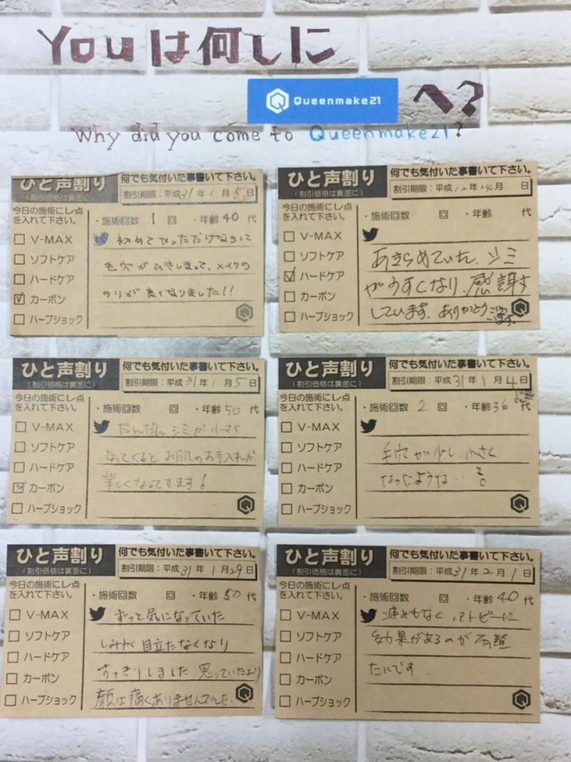 Youは何しに
Queenmake21 へ?
Why did you come to Queenmake21?
ひと声割り
(割引価格は裏面に)
何でも気付いた事書いて下さい。
割引期限:平成31年1月5日
今日の施術にレ点
を入れて下さい。
・施術回数 1 回 ・年齢 40 代
V-MAX
ソフトケア
ハードケア
カーボン
ハーブショック
初めてやっただけなのに
毛穴がひきしまって、メイクの
のりが良くなりました!!
ひと声割り
(割引価格は裏面に)
何でも気付いた事書いて下さい。
割引期限:平成 年 月 日
今日の施術にレ点
を入れて下さい。
・施術回数 回 ・年齢 代
V-MAX
ソフトケア
ハードケア
カーボン
ハーブショック
あきらめていた、シミ
がうすくなり、感謝
しています。ありがとうございます。
ひと声割り
(割引価格は裏面に)
何でも気付いた事書いて下さい。
割引期限:平成31年1月5日
今日の施術にレ点
を入れて下さい。
・施術回数 回 ・年齢 50 代
V-MAX
ソフトケア
ハードケア
カーボン
ハーブショック
だんだんシミが小さく
なってくるとお肌のお手入れが
楽しくなってきます!
ひと声割り
(割引価格は裏面に)
何でも気付いた事書いて下さい。
割引期限:平成31年1月4日
今日の施術にレ点
を入れて下さい。
・施術回数 2 回 ・年齢 36 代
V-MAX
ソフトケア
ハードケア
カーボン
ハーブショック
毛穴が少し小さく
なったような…
ひと声割り
(割引価格は裏面に)
何でも気付いた事書いて下さい。
割引期限:平成31年1月29日
今日の施術にレ点
を入れて下さい。
・施術回数 回 ・年齢 50 代
V-MAX
ソフトケア
ハードケア
カーボン
ハーブショック
ずっと気になっていた
しみが目立たなくなり
すっきりしました 思っていたより
顔は痛くありませんでした。
ひと声割り
(割引価格は裏面に)
何でも気付いた事書いて下さい。
割引期限:平成31年2月1日
今日の施術にレ点
を入れて下さい。
・施術回数 回 ・年齢 40 代
V-MAX
ソフトケア
ハードケア
カーボン
ハーブショック
痛みもなく、アトピーに
効果があるのが
たいです